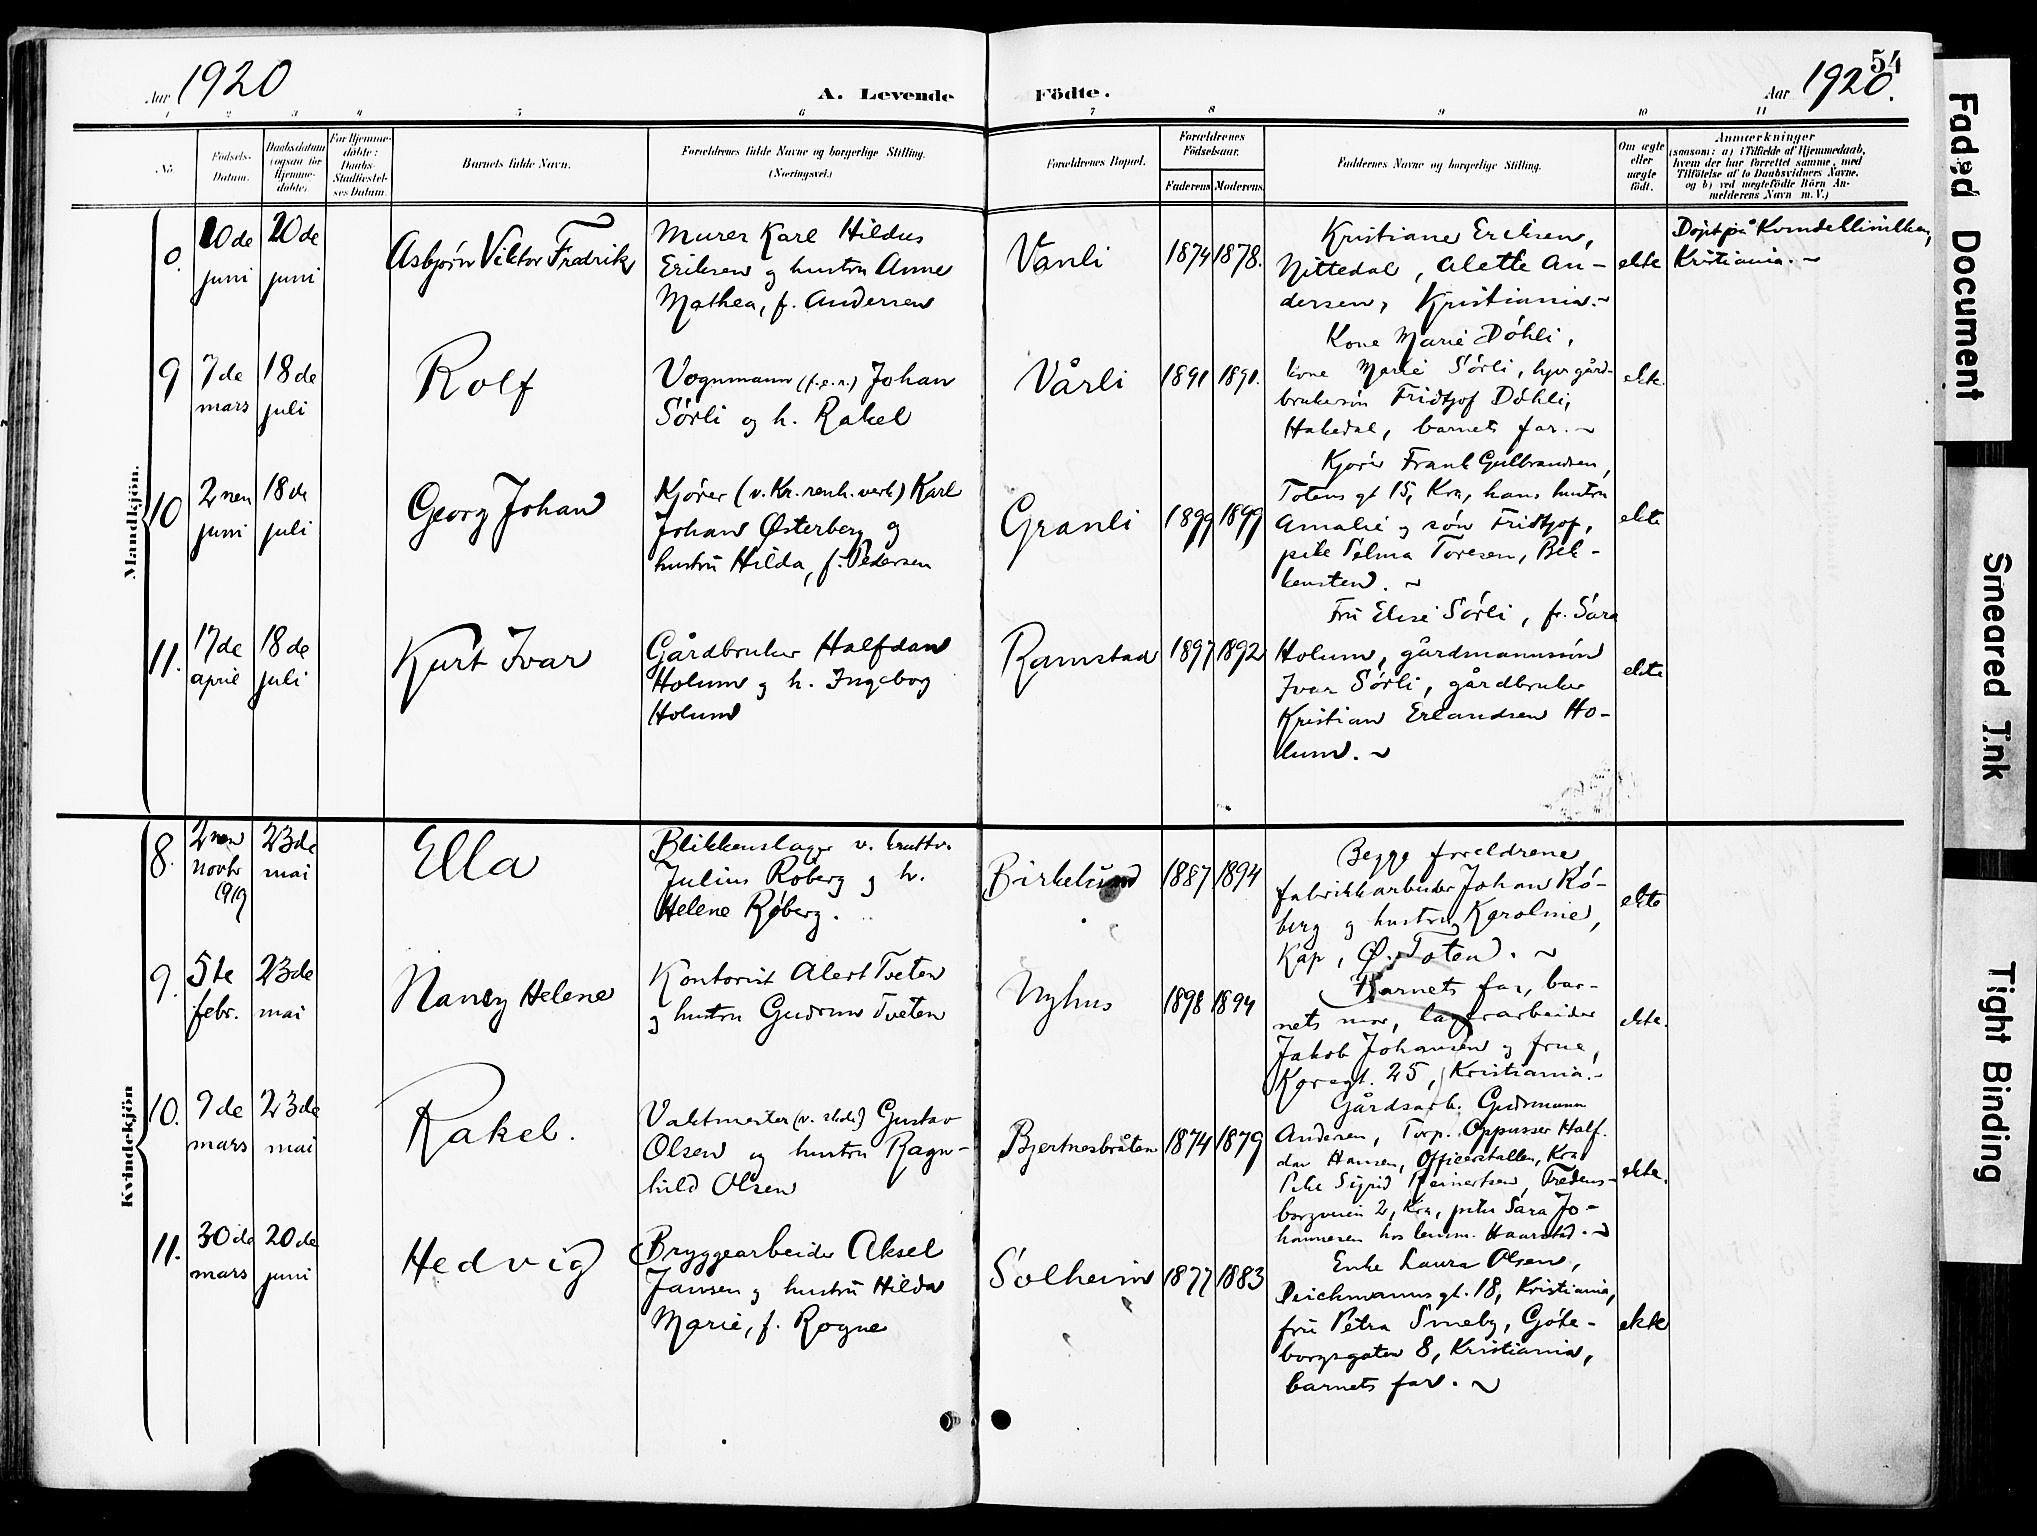 54
Aar 1920
A. Levende Födte.
Aar 1920.
1 2 3 4 5 6 7 8 9 10 11
No.
Födsels-
Datum.
Daabsdatum
(ogsaa for
Hjemme-
döbte).
For Hjemme-
döbte:
Daabs-
Stadfæstel-
ses Datum.
Barnets fulde Navn.
Forældrenes fulde Navne og borgerlige Stilling.
(Næringsvei.)
Forældrenes Bopæl.
Forældrenes
Födselsaar.
Faderens
Moderens
Faddernes Navne og borgerlige Stilling.
Om ægte
eller
uægte
födt.
Anmærkninger
(saasom: a) i Tilfælde af Hjemmedaab,
hvem der har forrettet samme, med
Tilföielse af to Daabsvidners Navne,
og b) ved uægtefödte Börn An-
melderens Navn m. V.)
Mandkjön.
20de
juni
20de
juni
Asbjørn Viktor Fredrik
Murer Karl Hildus
Eriksen og hustru Anne
Mathea, f. Andersen
Vanli
1874
1878.
Kristiane Eriksen,
Nittedal, Alette An-
dersen, Kristiania.~
ekte
Døpt på
Kristiania.~
9
7de
mars
18de
juli
Rolf
Vognmann (f.e.r.) Johan
Sørli og h. Rakel
Vårli
1891
1891.
Kone Marie Döhli,
kone Marie Sørli,
Fridtjof Döhli,
Hakedal, barnets far.~
ekte.
10
2nen
juni
18de
juli
Georg Johan
Kjører (v. Kr. renh. verk) Karl
Johan Østerberg og
hustru Hilda, f. Pedersen
Granli
1899
1899
Kjører Frank Gulbrandsen,
Totens gt 15, Kra, hans hustru
Amalie og søn Fridtjof,
pike Selma Toresen, Bek-
kensten.~
ekte
11.
17de
april
18de
juli
Kurt Ivar
Gårdbruker Halfdan
Holum og h. Ingeborg
Holum
Ramstad
1897
1892
Fru Elise Sørli, fr. Sara
Holum, gårdmannssøn
Ivar Sørli, gårdbruker
Kristian Erlandsen Ho-
lum.~
ekte
Kvindekjön
8.
2nen
novbr
1919
23de
mai
Ella
Blikkenslager v.
Julius Røberg og h.
Helene Røberg.
Birkelund
1887
1894
Begge foreldrene,
fabrikkarbeider Johan Rø-
berg og hustru Karoline,
Kap, Ø. Toten.~
ekte
9.
5te
febr.
23de
mai
Nancy Helene
Kontorist Alert Tveten
og hustru Gudrun Tveten
Nyhus
1898
1894
Barnets far, bar-
nets mor, lagerarbeider
Jakob Johansen og frue,
Korsgt. 25, Kristiania.~
ekte.
10.
9de
mars
23de
mai
Rakel.
Vaktmester Gustav
Olsen og hustru Ragn-
hild Olsen
Bjertnesbråten
1874
1879
Gårdsarb. Gudmann
Andersen, Torp. Oppasser Half-
dan Hansen, Officerstallen, Kra
Pike Sigrid Reinertsen, Fredens-
borgveien 2, Kra, pike Sara Jo-
hannesen hos lensm. Haarstad.~
ekte.
11.
30de
mars
20de
juni
Hedvig
Bryggearbeider Aksel
Jansen og hustru Hilda
Marie, f. Rogne
Solheim
1877
1883
Enke Laura Olsen,
Deichmanns gt. 18, Kristiania,
fru Petra Smeby, Göte-
borgsgaten 8, Kristiania,
barnets far.~
ekte
Faded Document
Smeared Ink
Tight Binding